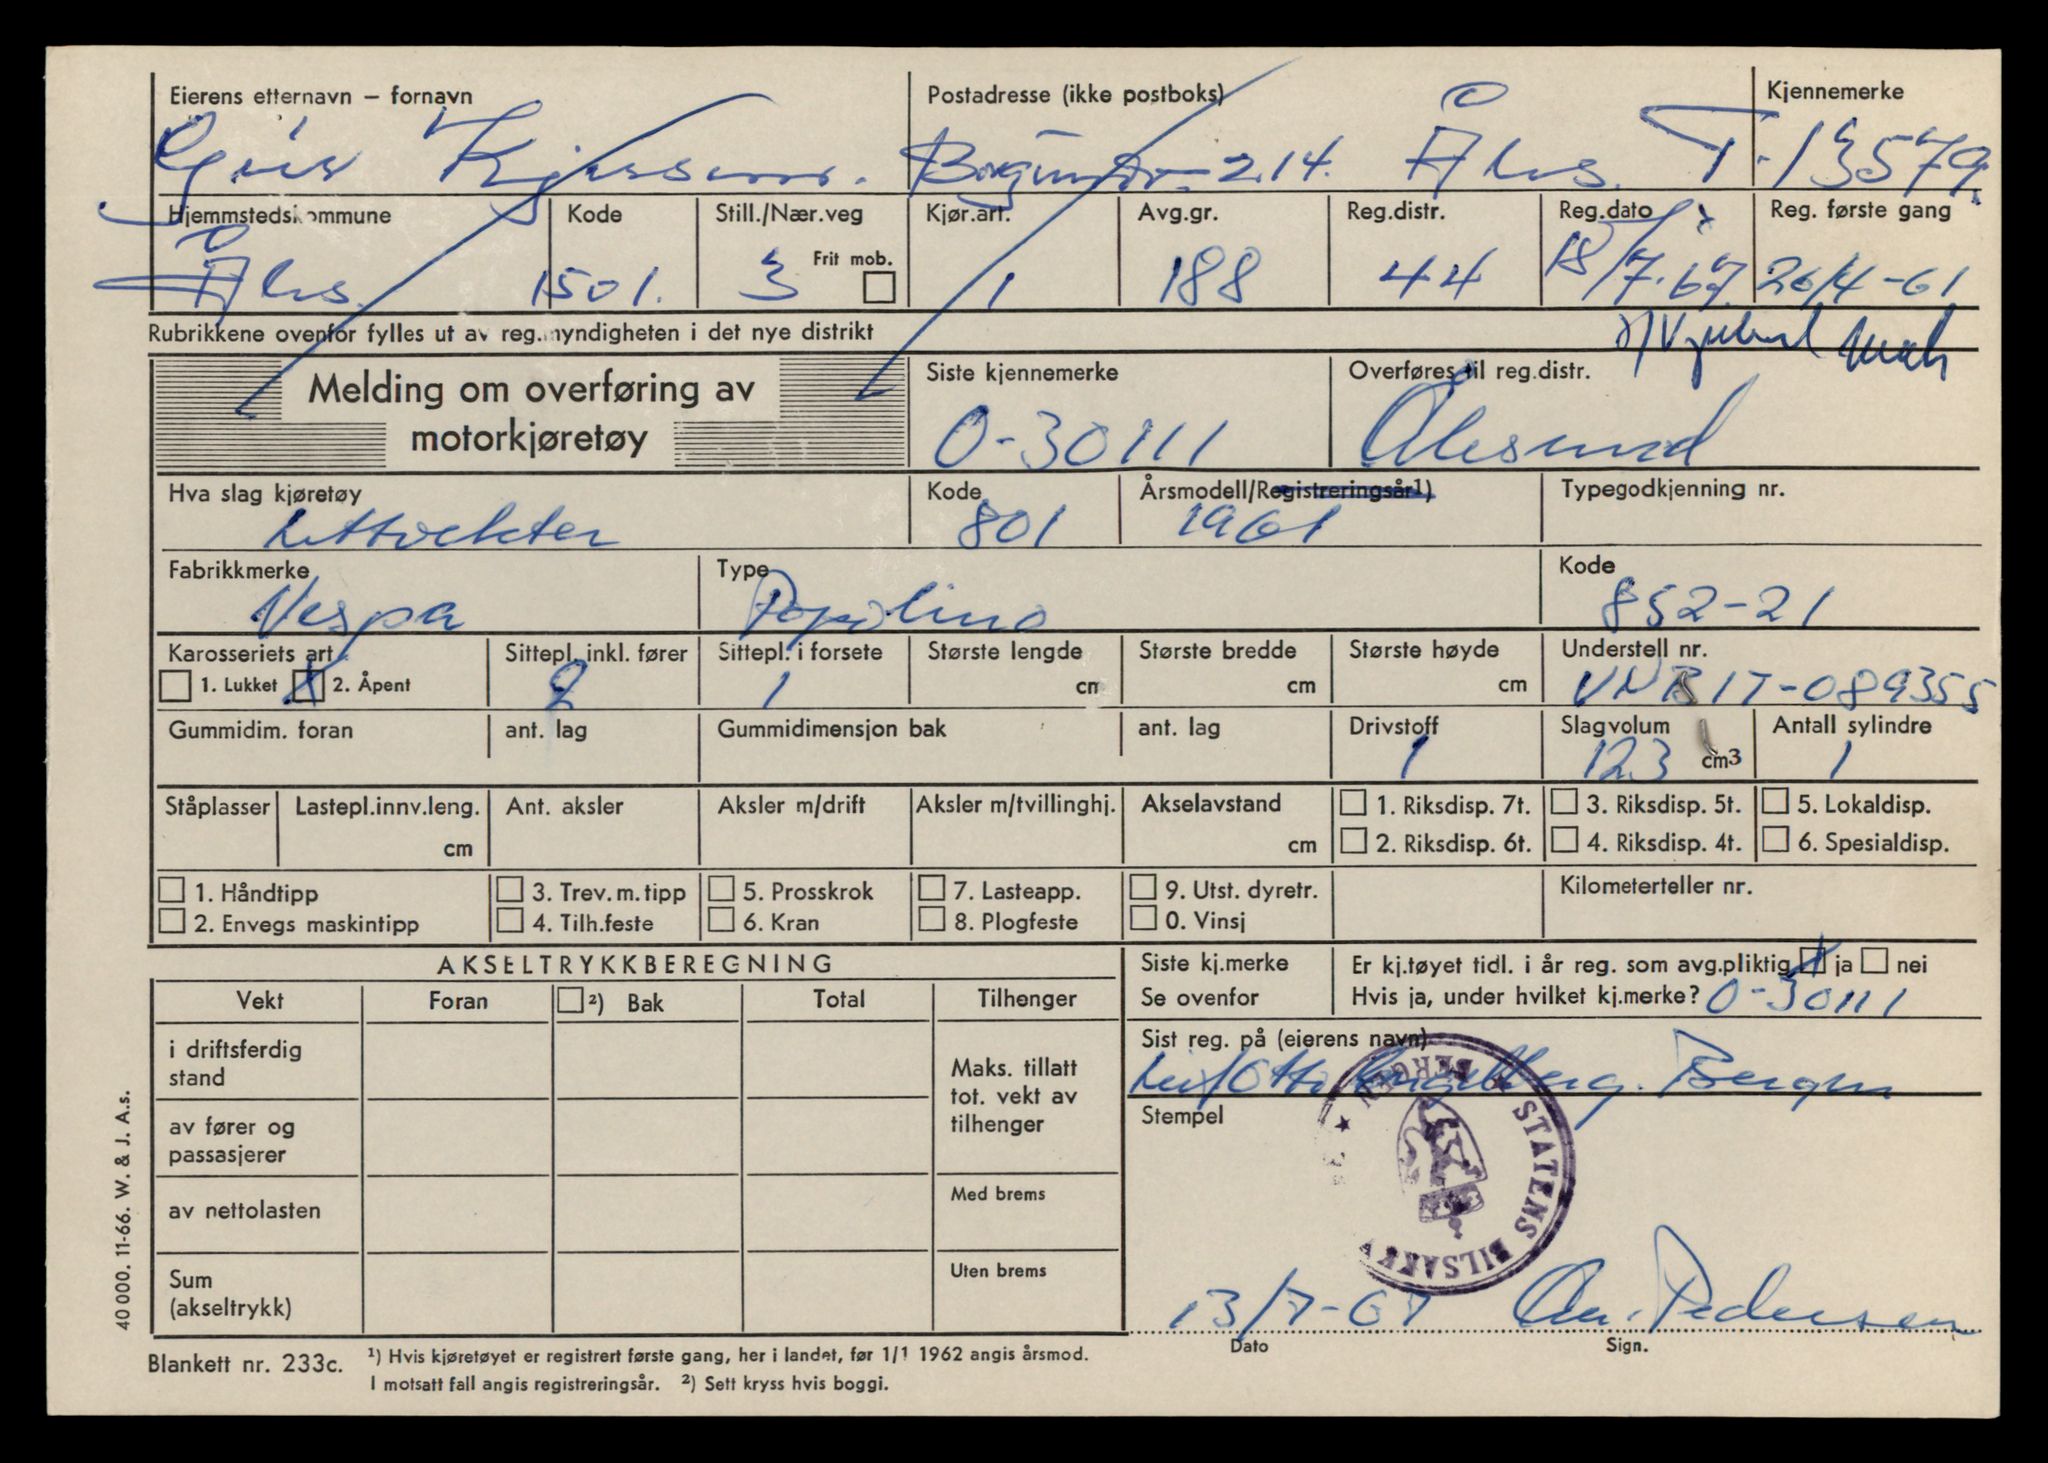 Eierens etternavn – fornavn Postadresse (ikke postboks) Kjennemerke
2.14. Ålis. T-13579
Hjemmstedskommune Kode Still./Nær.veg Kjør.art. Avg.gr. Reg.distr. Reg.dato Reg. første gang
Frit mob.
1501. 3 1 188 44 18/7.67 26/4-61
Rubrikkene ovenfor fylles ut av reg.myndigheten i det nye distrikt
Melding om overføring av motorkjøretøy
Siste kjennemerke Overføres til reg.distr.
O-30111 Ålesund
Hva slag kjøretøy Kode Årsmodell/Registreringsår¹) Typegodkjenning nr.
Lettvekter 801 1961
Fabrikkmerke Type Kode
Vespa Popolino 852-21
Karosseriets art Sittepl. inkl. fører Sittepl. i forsete Største lengde Største bredde Største høyde Understell nr.
1. Lukket X 2. Åpent 2 1 cm cm cm VNB1T-089355
Gummidim. foran ant. lag Gummidimensjon bak ant. lag Drivstoff Slagvolum Antall sylindre
1 123 cm³ 1
Ståplasser Lastepl.innv.leng. Ant. aksler Aksler m/drift Aksler m/tvillinghj. Akselavstand 1. Riksdisp. 7t. 3. Riksdisp. 5t. 5. Lokaldisp.
cm cm 2. Riksdisp. 6t. 4. Riksdisp. 4t. 6. Spesialdisp.
1. Håndtipp 3. Trev. m. tipp 5. Prosskrok 7. Lasteapp. 9. Utst. dyretr. Kilometerteller nr.
2. Envegs maskintipp 4. Tilh.feste 6. Kran 8. Plogfeste 0. Vinsj
AKSELTRYKKBEREGNING
Vekt Foran ²) Bak Total Tilhenger
i driftsferdig stand
Maks. tillatt tot. vekt av tilhenger
av fører og passasjerer
av nettolasten
Med brems
Sum (akseltrykk)
Uten brems
Siste kj.merke Er kj.tøyet tidl. i år reg. som avg.pliktig X ja nei
Se ovenfor Hvis ja, under hvilket kj.merke? O-30111
Sist reg. på (eierens navn)
Leif Otto Engelberg. Bergen
Stempel
STATENS BILSAKK
BERGEN
13/7-67 Pedersen
Dato Sign.
Blankett nr. 233c.
¹) Hvis kjøretøyet er registrert første gang, her i landet, før 1/1 1962 angis årsmod.
I motsatt fall angis registreringsår. ²) Sett kryss hvis boggi.
40 000. 11-66. W. & J. A.s.